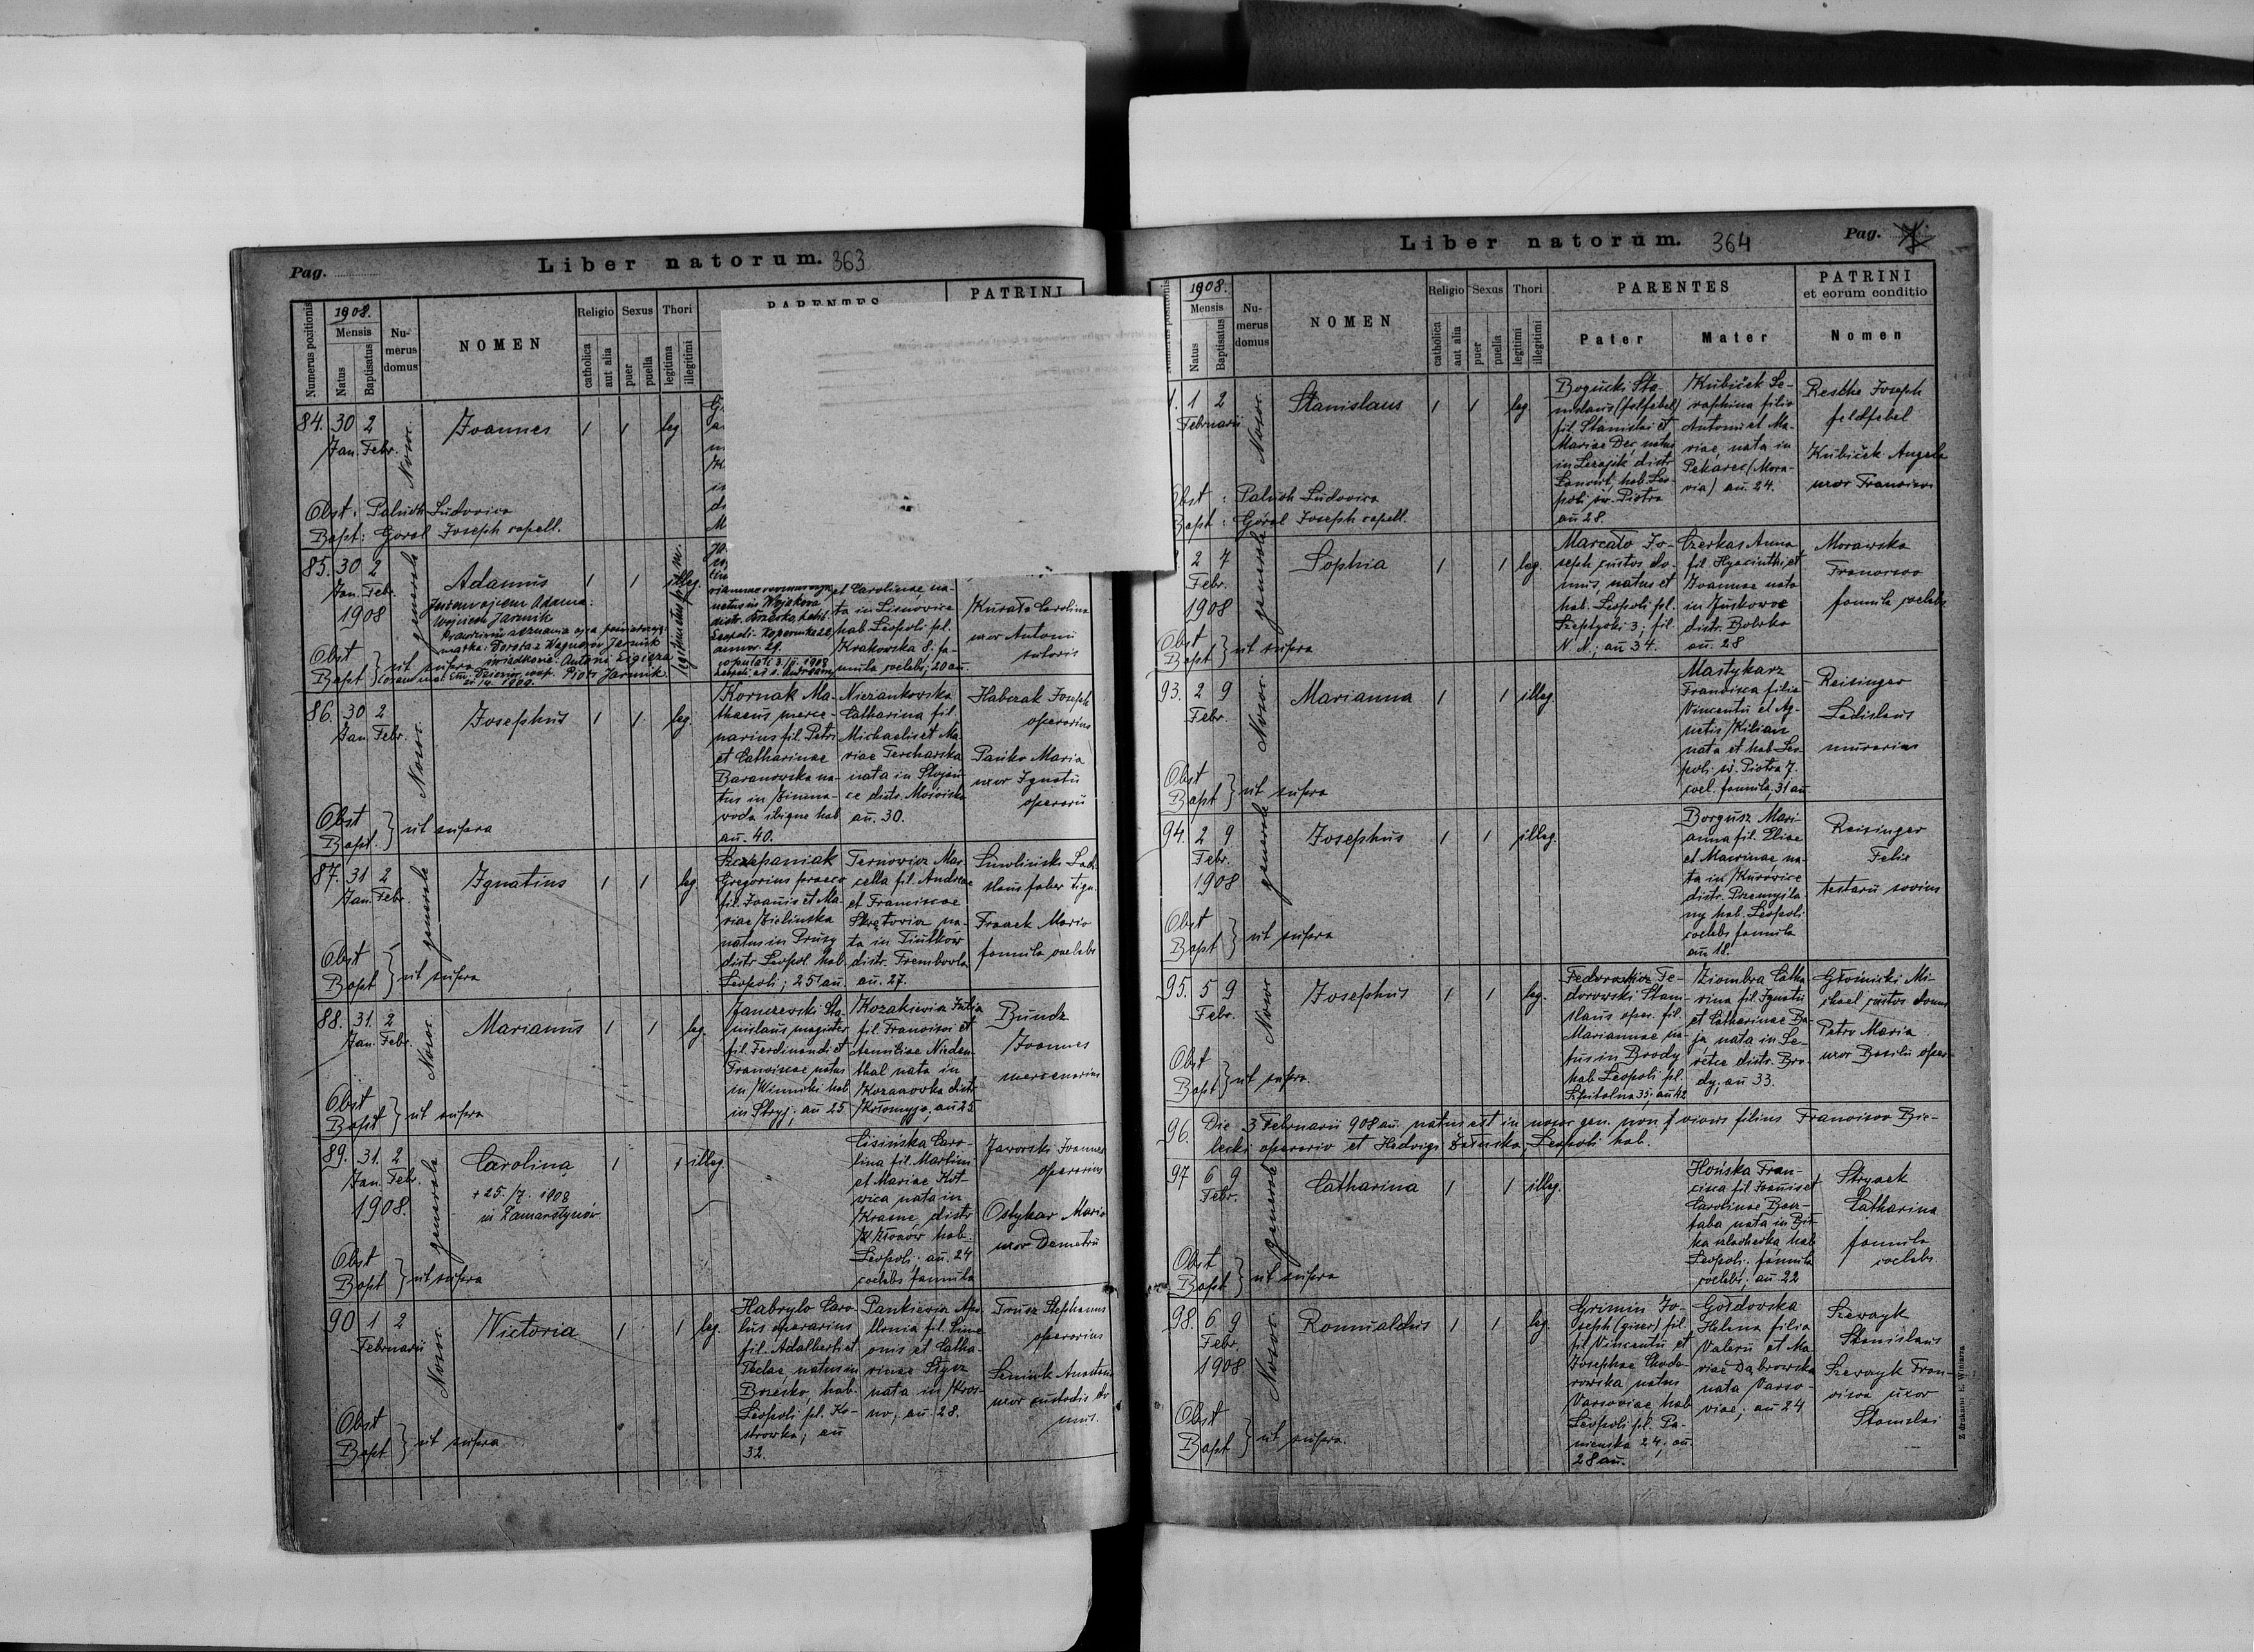 Pag.
Liber natorum. 363
Numerus positionis
1908.
Mensis
Natus
Baptisatus
Nu-
merus
domus
NOMEN
Religio
catholica
aut alia
Sexus
puer
puella
Thori
legitima
illegitimi
PARENTES
PATRINI
84. 30 2
Jan. Febr.
Nosoc.
Joannes
1 1 leg
Obst: Paluch Ludovica
Bapt: Góral Joseph capell.
85. 30 2
Jan. Feb.
1908
generale
Adamus
1 1 illeg.
Wojciech Jarmik
Obst
Bapt } ut supra
natus in Wojakowa
distr. Brzesko, habit.
Leopoli - Kopernika 22
annor. 29.
et Carolinae, na-
ta in Lisnowice
hab. Leopoli pl.
Krakowska 8. fa-
mula coelebs; 20 an.
Kurała Carolina
uxor Antonii
sutoris
86. 30 2
Jan. Febr.
Nosoc.
Josephus
1 1 leg.
Kornak Ma-
thaeus merce-
narius fil. Petri
et Catharinae
Baranowska na-
tus in Zimna-
woda ibique hab
an. 40.
Niezankowska
Catharina fil.
Michaelis et Ma
riae Tercharska
nata in Stojan
ce distr. Mościska
an. 30.
Haberak Joseph
operarius
Pańko Maria
uxor Ignatii
operarii
Obst
Bapt. } ut supra
87. 31 2
Jan. Febr.
generale
Ignatius
1 1 leg.
Szczepaniak
Gregorius praeco
fil. Joanis et Ma-
riae Zielinska
natus in Prusy
distr. Leopol. hab.
Leopoli; 25 an
Ternowicz Mar-
cella fil. Andreae
et Franciscae
Skrętowicz na-
ta in Tiutków
distr. Trembowla
an. 27.
Smoliński Lad
slaus faber tign.
Fraack Maria
famula coelebs
Obst
Bapt } ut supra
88. 31. 2
Jan. Febr.
Nosoc.
Marianus
1 1 leg.
Janczewski Sta
nislaus magister
fil. Ferdinandi et
Franciscae natus
in Winniki hab
in Stryj; an 25
Kozakiewicz Julia
fil. Francisci et
Aemiliae Nieden-
thal nata in
Kozaczówka distr
Kołomyja, an 25
Bundz
Joannes
mercenarius
Obst
Bapt } ut supra
89. 31. 2
Jan. Febr.
1908.
generale
Carolina
+ 25./7. 1908
in Zamarstynów
1 1 illeg.
Cisińska Caro-
lina fil. Martini
et Mariae Kot-
wica nata in
Krasne, distr
Złoczów hab.
Leopoli. an. 24
coelebs famula
Jaworski Joannes
operarius
Ostykar Maria
uxor Demetrii
Obst
Bapt } ut supra
90 1 2
Februarii
Nosoc.
Victoria
1 1 leg.
Habrylo Caro-
lus operarius
fil. Adalberti et
Theclae, natus in
Brzesko, hab.
Leopoli pl. Ko-
strowka; an
32.
Pankiewicz Apo
llonia fil. Sime
onis et Catha-
rinae Stysz
nata in Kros-
no, an. 28.
Trusz Stephanus
operarius
Seniuk Anastasia
uxor custodis do
mus.
Obst
Bapt } ut supra
Liber natorum. 364
Pag.
1908.
Mensis
Natus
Baptisatus
Nu-
merus
domus
NOMEN
Religio
catholica
aut alia
Sexus
puer
puella
Thori
legitimi
illegitimi
PARENTES
Pater
Mater
PATRINI
et eorum conditio
Nomen
1. 1 2
Februarii
Nosoc.
Stanislaus
1 1 leg.
Bogucki Sta-
nislaus (felfebel)
fil. Stanislai et
Mariae Dec, natus
in Leżajsk distr
Lancut, hab. Leo-
poli św. Piotra
an 28.
Kubiček Se-
raphina filia
Antonii et Ma-
riae, nata in
Pekarec (Mora-
via) an. 24.
Reschke Joseph
feldfebel
Kubiček Angela
uxor Francisci
Obst: Paluch Ludovica
Bapt: Góral Joseph capell.
2 7
Febr.
1908
generale
Sophia
1 1 leg.
Marcało Jo-
seph custos do-
mus, natus et
hab. Leopoli pl.
Szeptycki 3; fil.
N. N.; an 34.
Czerkas Anna
fil. Hyacinthi et
Joannae nata
in Juskowce
distr. Bobrka
an. 28
Morawska
Francisca
famula coelebs
Obst
Bapt } ut supra
93. 2 9
Febr.
Nosoc.
Marianna
1 1 illeg.
Mastykarz
Francisca filia
Vincentii et Ag-
netis Kilian
nata et hab. Leo-
poli św. Piotra 7.
coel. famula, 31 an
Reisinger
Ladislaus
murarius
Obst
Bapt } ut supra
94. 2 9
Febr.
1908
generale
Josephus
1 1 illeg.
Borgusz Mari-
anna fil. Eliae
et Mawrinae, na-
ta in Kurowice
distr. Przemyśla-
ny hab. Leopoli.
coelebs famula
an 18.
Reisinger
Felix
testarii socius
Obst
Bapt } ut supra
95. 5 9
Febr.
Nosoc.
Josephus
1 1 leg.
Fedorowicz Fe-
dorowski Stani-
slaus oper. fil.
Mariannae na-
tus in Brody
hab. Leopoli pl.
Szpitalna 35; an 42
Ziombra Catha
rina fil. Ignatii
et Catharinae Ba-
ja, nata in Le-
retce distr. Bro-
dy, an 33.
Głomiński Mi-
chael custos domus
Petru Maria
uxor Basilii oper.
Obst
Bapt } ut supra.
96. Die 3 Februarii 908 an. natus est in nosoc. gen. non vivus filius Francisco Bie-
lecki operario et Hedvigi Załuska, Leopoli hab.
97 6 9
Febr.
generale
Catharina
1 1 illeg.
Hońska Fran-
cisca fil. Joannis et
Carolinae Basz-
taba nata in Bił-
ka szlachecka hab
Leopoli. famula
coelebs; an. 22
Stryjack
Catharina
famula
coelebs
Obst
Bapt } ut supra
98. 6 9
Febr
1908
Nosoc.
Romualdus
1 1 leg.
Grimin Jo-
seph (giser) fil.
fil Vincentii et
Josephae Chodo-
rowska natus
Varsoviae, hab
Leopoli pl. Pa-
nieńska 24; an.
28 an.
Gołdowska
Helena filia
Valerii et Ma
riae Dąbrowska
nata Varso-
viae; an 24
Szewczyk
Stanislaus
Szewczyk Fran-
cisca uxor
Stanislai
Obst
Bapt } ut supra.
Z drukarni E. Winiarza